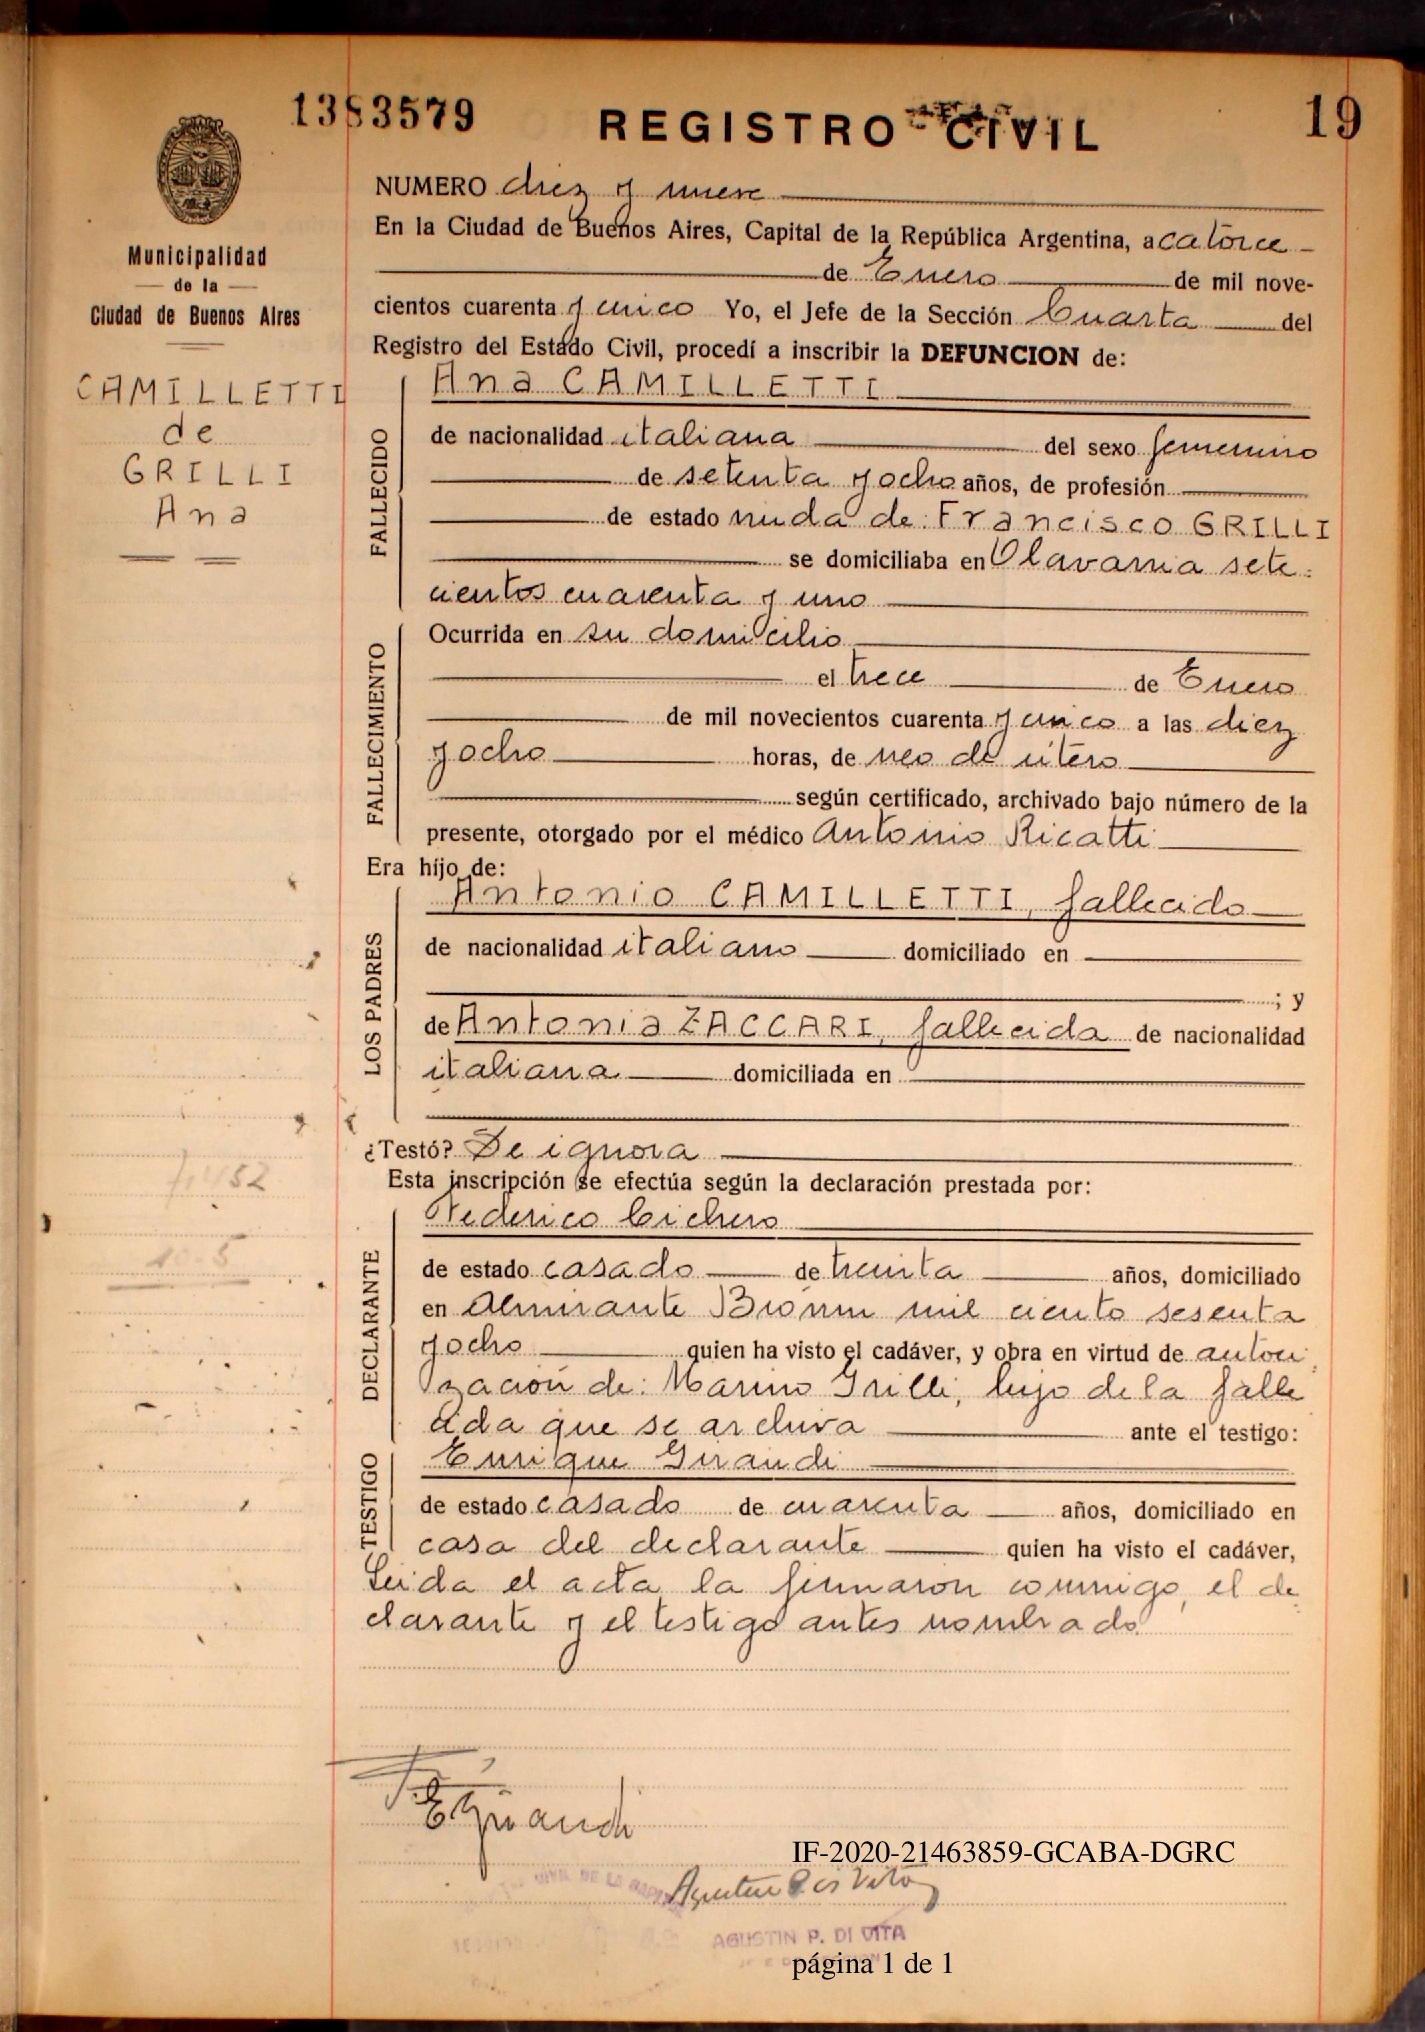 1383579
REGISTRO CIVIL
19
NUMERO diez y nueve
En la Ciudad de Buenos Aires, Capital de la República Argentina, a catorce
de Enero de mil nove-
cientos cuarenta y cinco Yo, el Jefe de la Sección Cuarta del
Registro del Estado Civil, procedí a inscribir la DEFUNCION de:
Municipalidad
de la
Ciudad de Buenos Aires
CAMILLETTI
de
GRILLI
Ana
FALLECIDO
Ana CAMILLETTI
de nacionalidad italiana del sexo femenino
de setenta y ocho años, de profesión
de estado viuda de: Francisco GRILLI
se domiciliaba en Olavarria sete-
cientos cuarenta y uno
FALLECIMIENTO
Ocurrida en su domicilio
el trece de Enero
de mil novecientos cuarenta y cinco a las diez
y ocho horas, de neo de útero
según certificado, archivado bajo número de la
presente, otorgado por el médico Antonio Ricatti
Era hijo de:
LOS PADRES
Antonio CAMILLETTI, fallecido
de nacionalidad italiano domiciliado en
; y
de Antonia ZACCARI, fallecida de nacionalidad
italiana domiciliada en
¿Testó? Se ignora
Esta inscripción se efectúa según la declaración prestada por:
DECLARANTE
Federico Cichero
de estado casado de treinta años, domiciliado
en Almirante Brown mil ciento sesenta
y ocho quien ha visto el cadáver, y obra en virtud de autori-
zación de: Marino Grilli, hijo de la falle
cida que se archiva ante el testigo:
TESTIGO
Enrique Girandi
de estado casado de cuarenta años, domiciliado en
casa del declarante quien ha visto el cadáver,
Leida el acta la firmaron conmigo, el de-
clarante y el testigo antes nombrado
10-5
EGirandi
IF-2020-21463859-GCABA-DGRC
AGUSTIN P. DI VITA
página 1 de 1